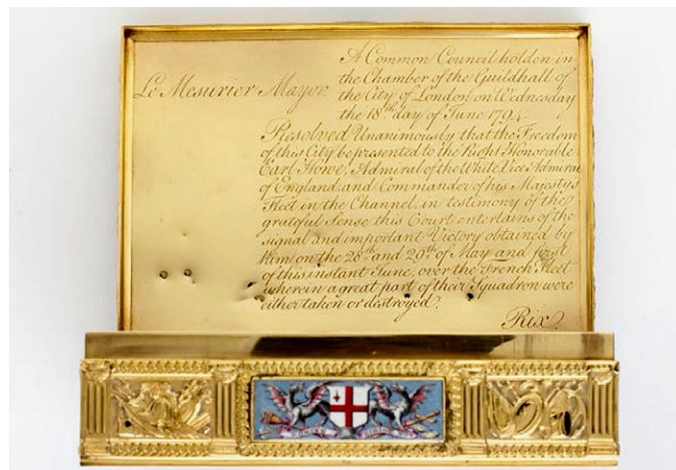 A Common Council holden in
Le Mesurier Mayor. the Chamber of the Guildhall of
the City of London on Wednesday
the 18th day of June 1794.
Resolved Unanimously that the Freedom
of this City be presented to the Right Honorable
Earl Howe, Admiral of the White, Vice Admiral
of England, and Commander of his Majesty's
Fleet in the Channel, in testimony of the
grateful Sense this Court entertains of the
signal and important Victory obtained by
him on the 28th and 29th of May and first
of this instant June, over the French Fleet
wherein a great part of their Squadron were
either taken or destroyed.
Rix.